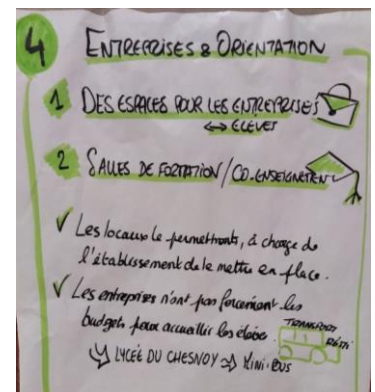 4 ENTREPRISES & ORIENTATION
1 DES ESPACES POUR LES ENTREPRISES
<=> ELEVES
2 SALLES DE FORMATION / CO-ENSEIGNEMENT
✓ Les locaux le permettront, à charge de
l'établissement de le mettre en place.
✓ Les entreprises n'ont pas forcément les
budgets pour accueillir les élèves.
TRANSPORT
LYCÉE DU CHESNOY => MINI-BUS